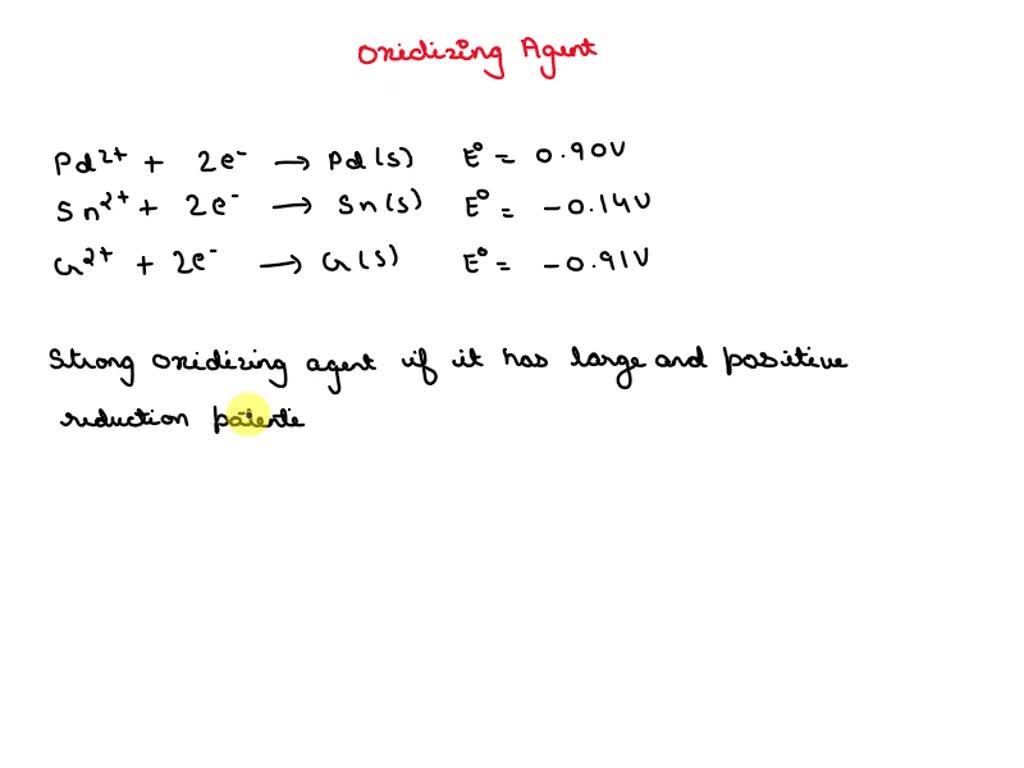 Oxidizing Agent
Pd²⁺ + 2e⁻ → Pd(s) E° = 0.90V
Sn²⁺ + 2e⁻ → Sn(s) E° = -0.14V
Cr²⁺ + 2e⁻ → Cr(s) E° = -0.91V
Strong oxidizing agent if it has large and positive
reduction potentie